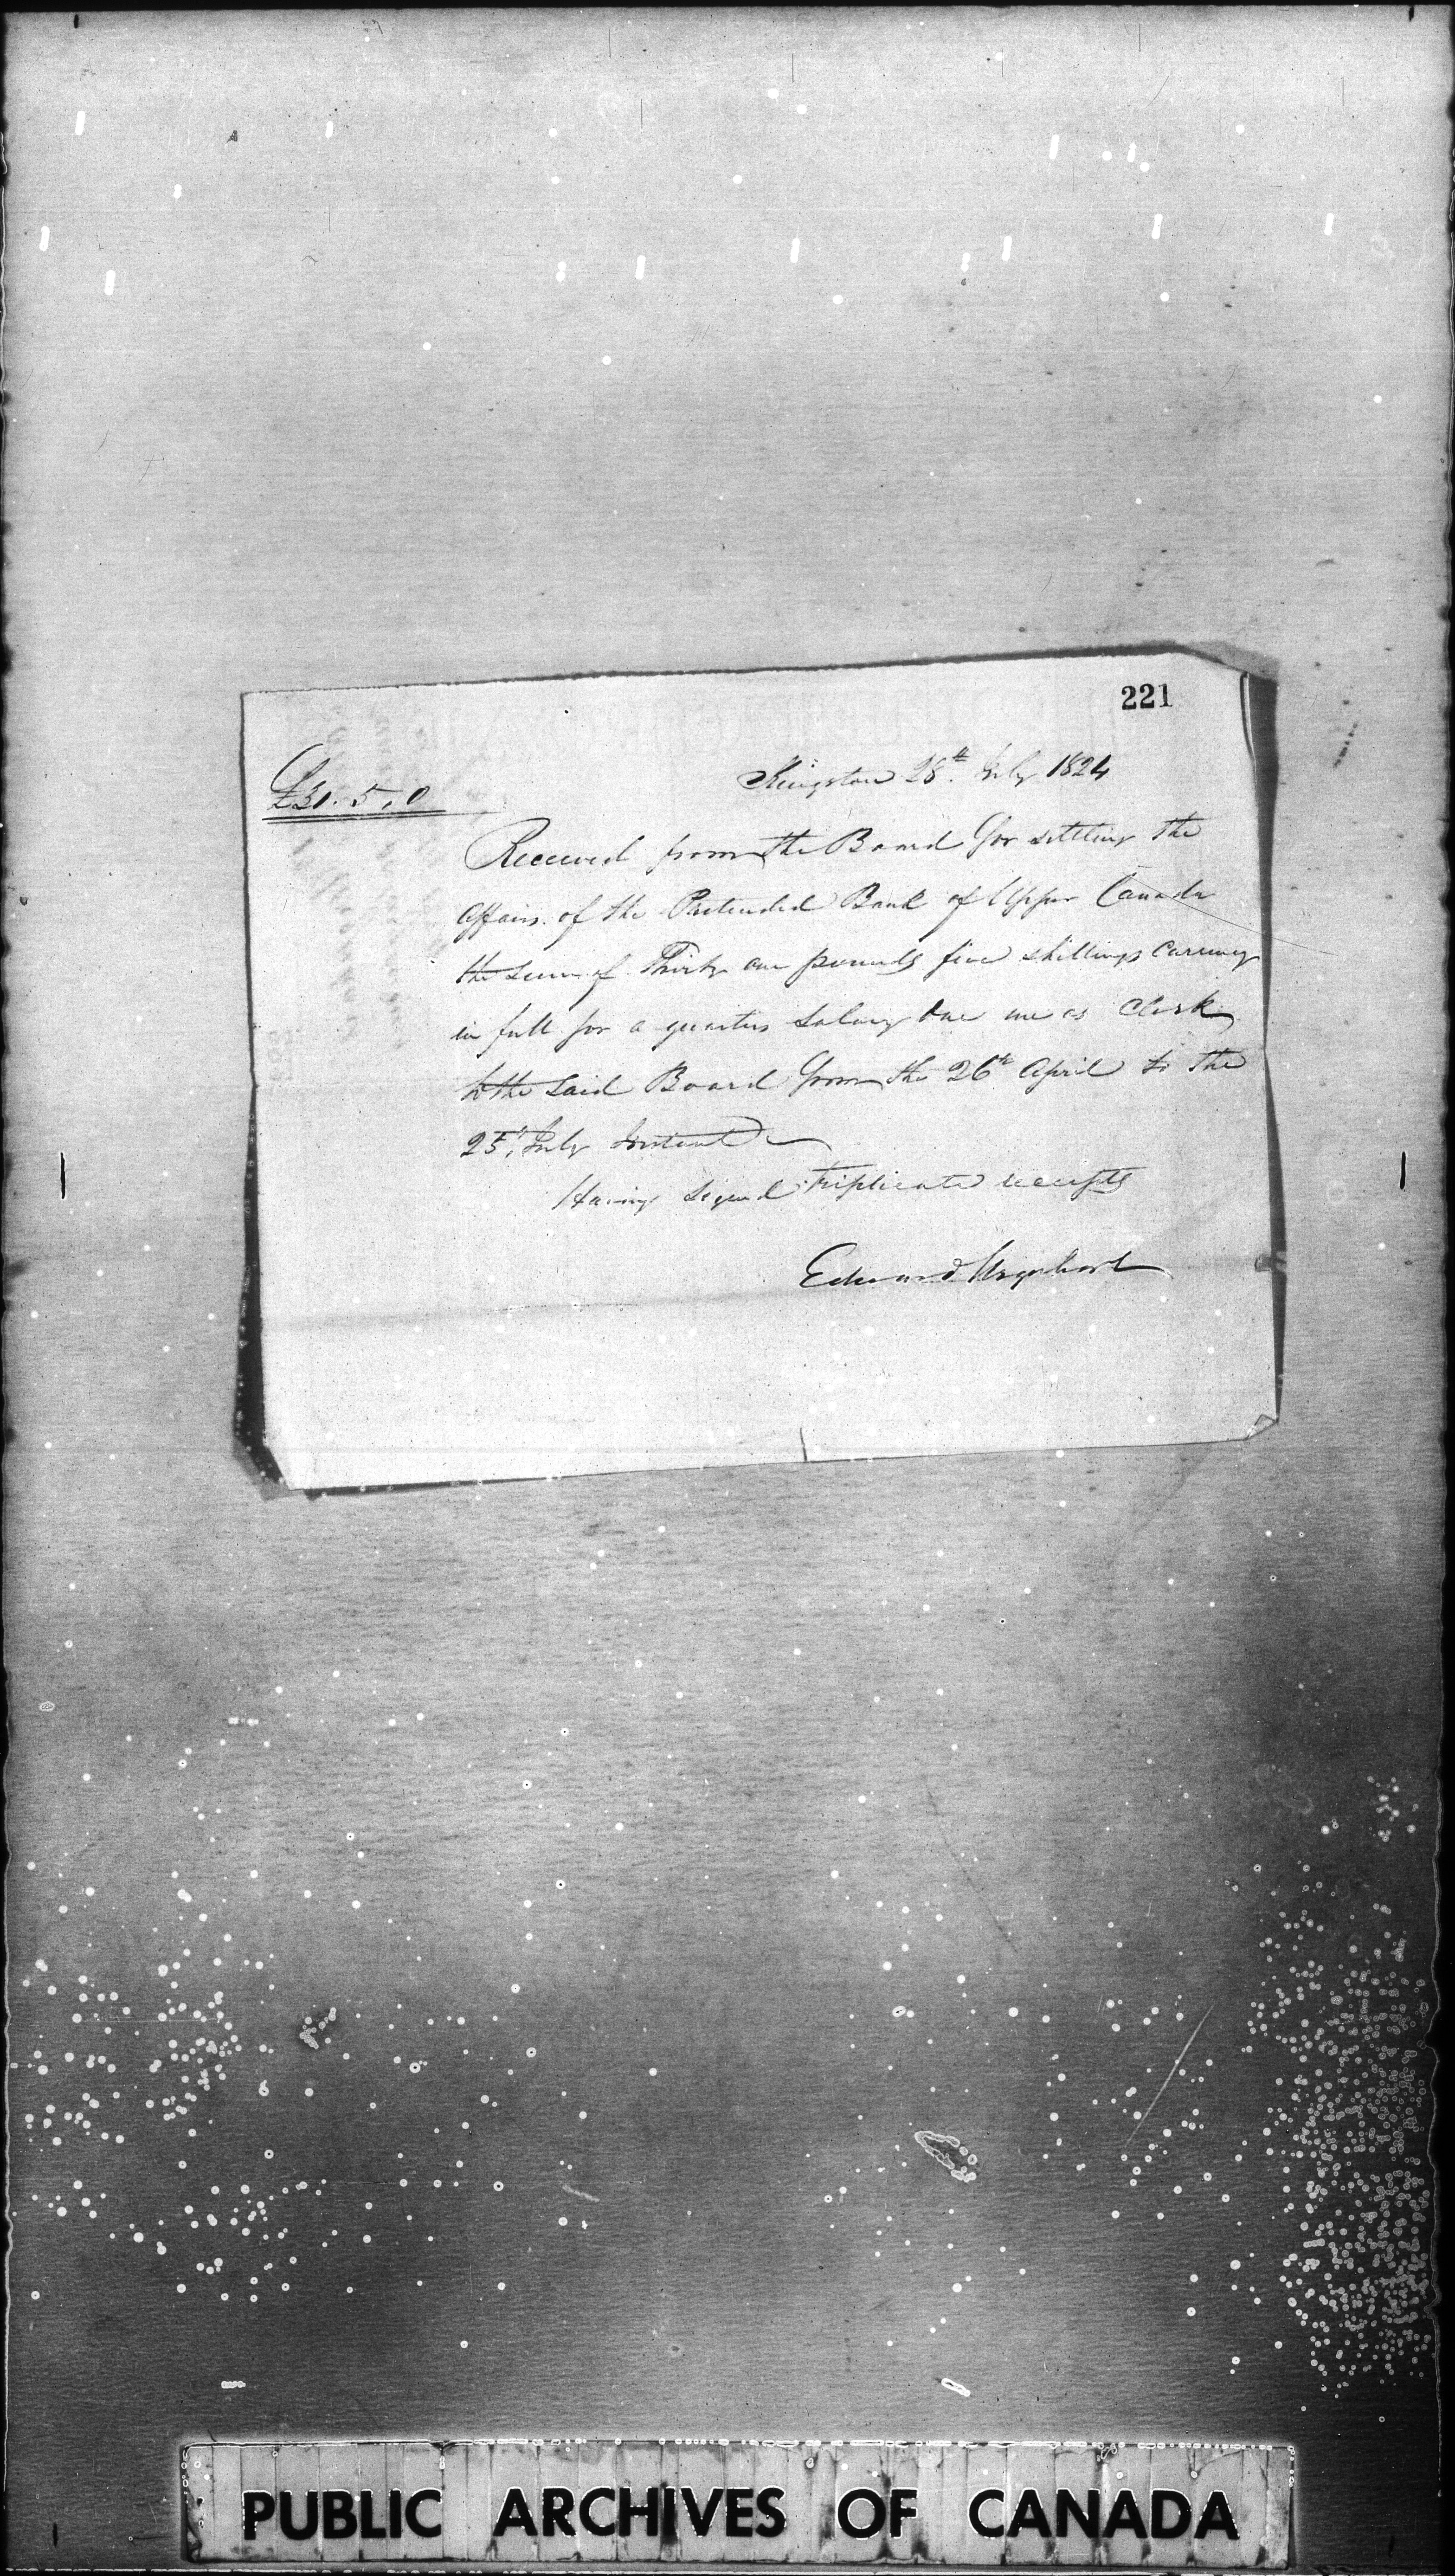 221
Kingston 28th July 1824
£31. 5. 0
Received from the Board for settling the
affairs of the Pretended Bank of Upper Canada
the sum of Thirty one pounds five shillings Currency
in full for a quarters Salary due me as Clerk
to the said Board from the 26th April to the
25th July Instant
Having Signed Triplicate receipts
Edward Urquhart
PUBLIC ARCHIVES OF CANADA